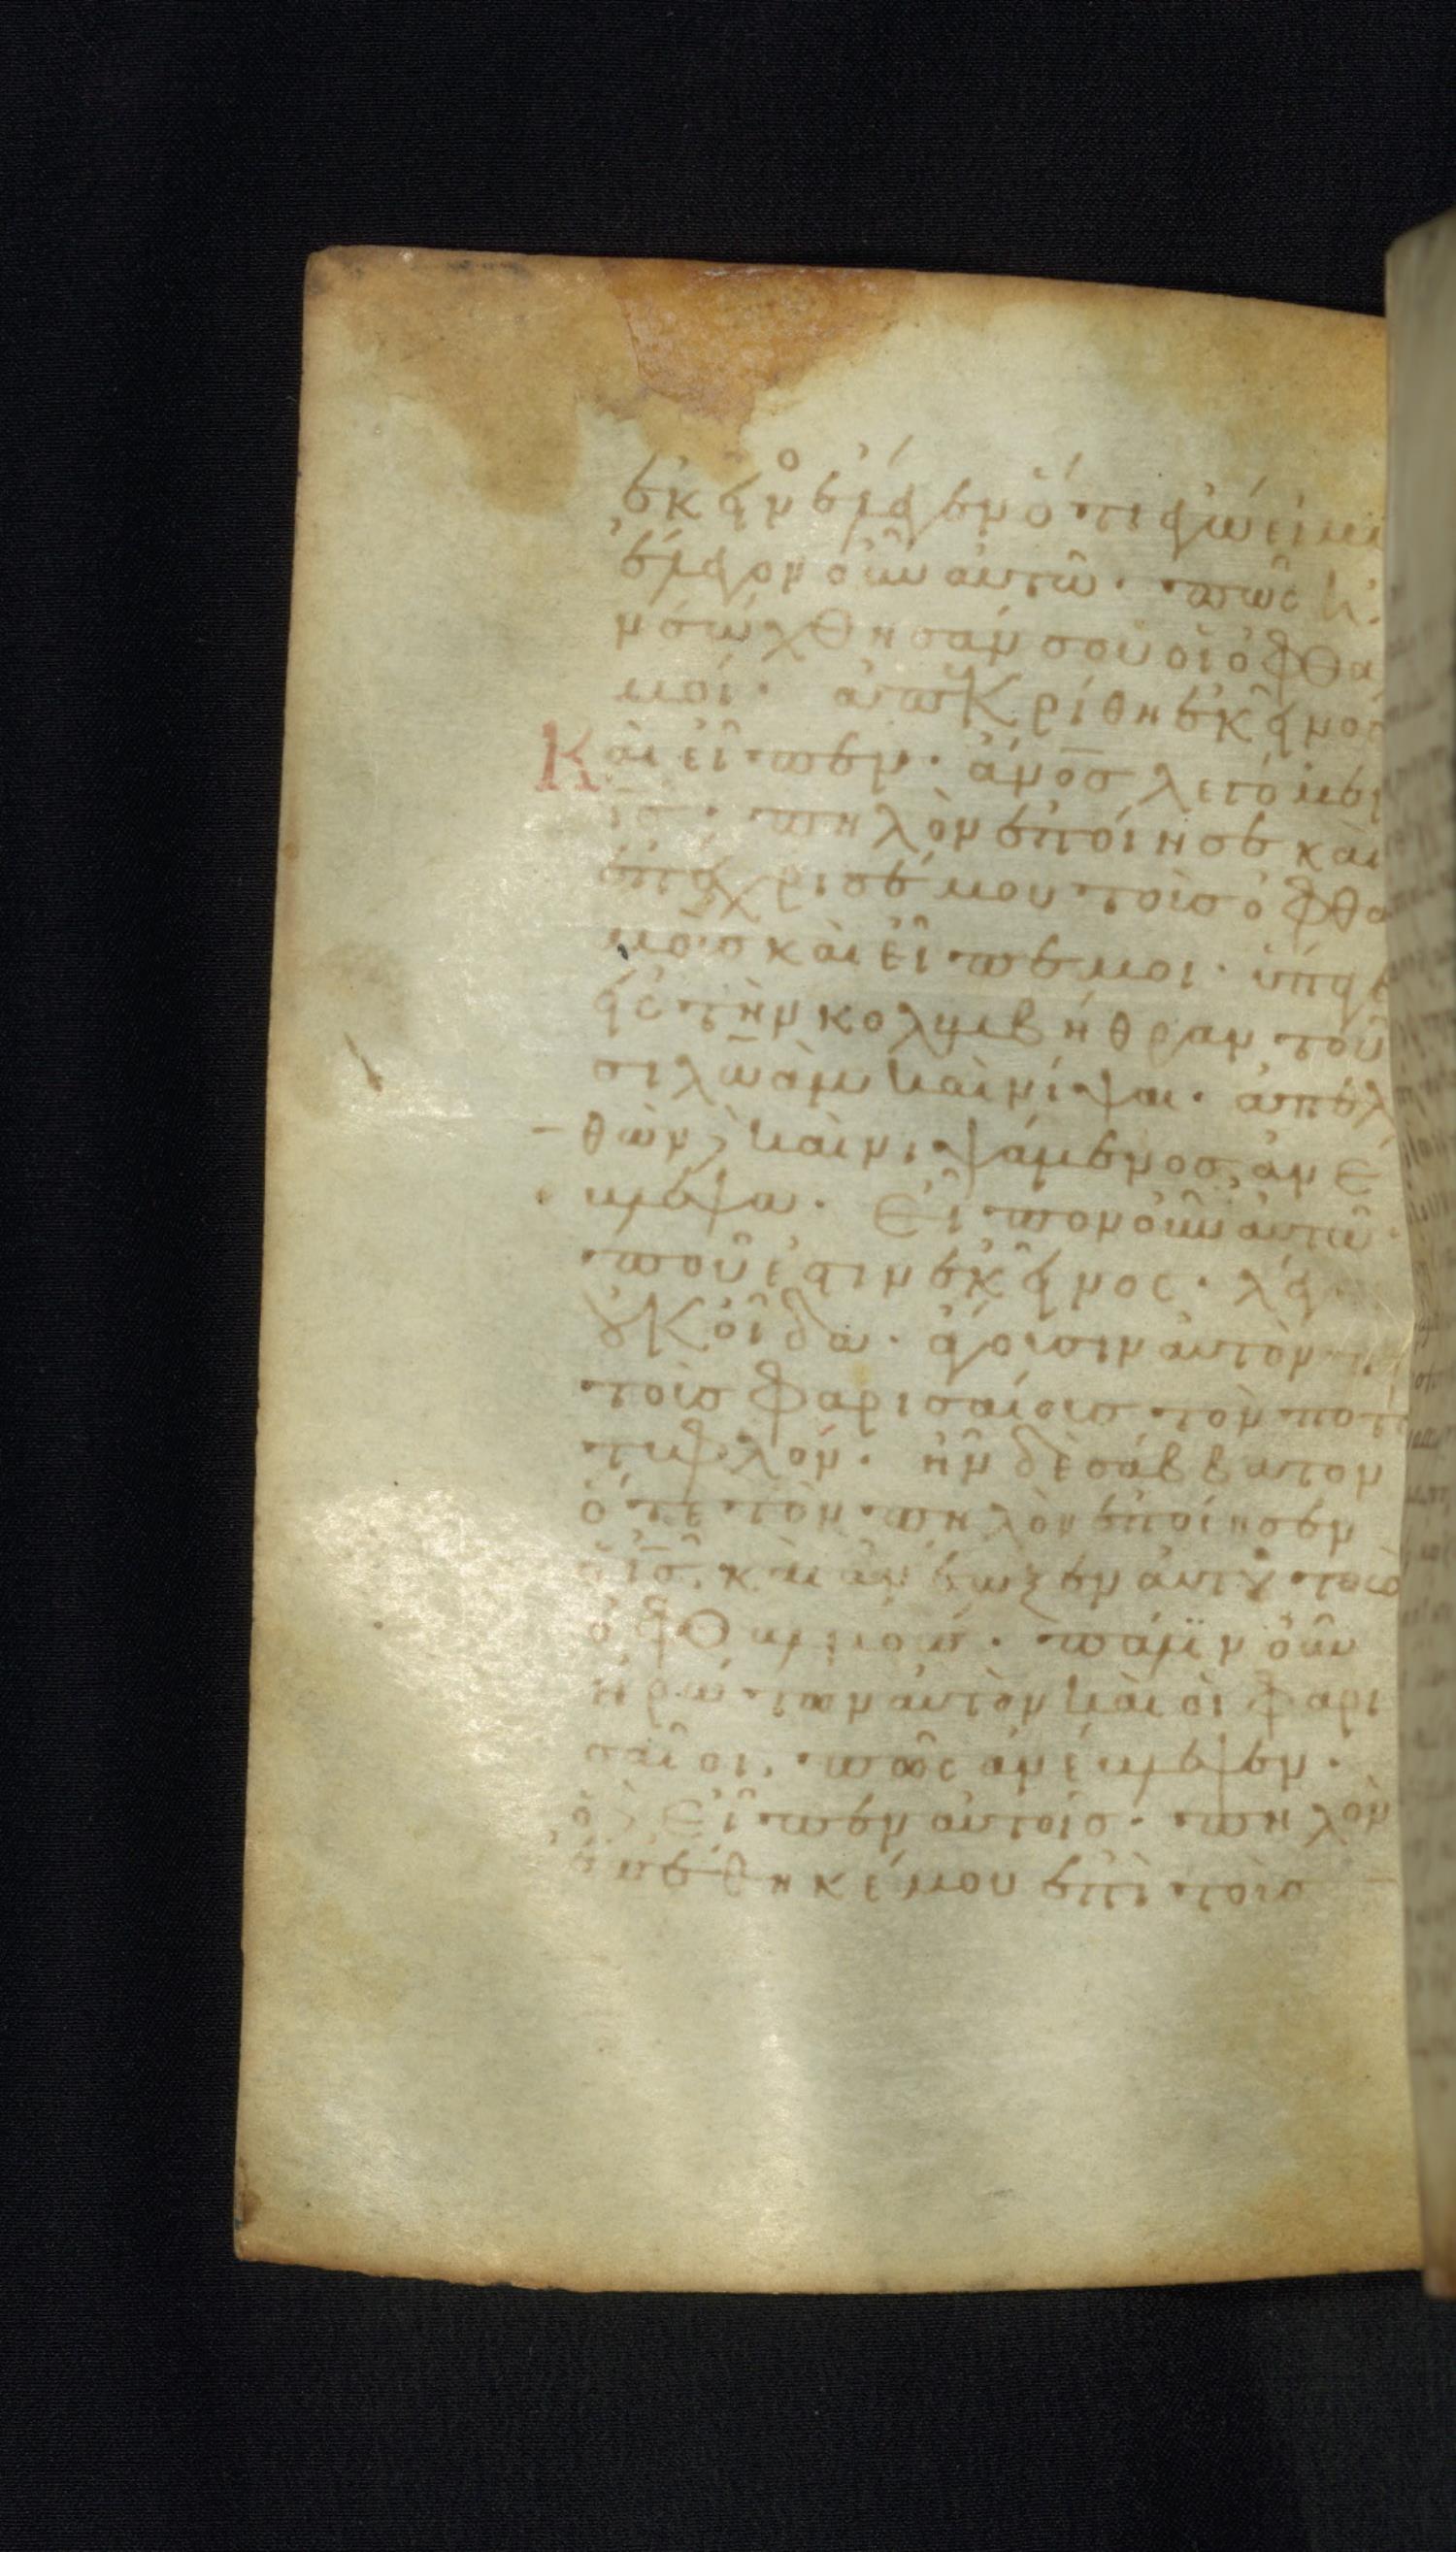 ἐκεῖνος ἔλεγεν ὅτι ἐγώ εἰμι
ἔλεγον οὖν αὐτῶ· πῶς
νεώχθησάν σου οἱ ὀφθα
μοί· ἀπεκρίθη ἐκεῖνος
Καὶ εἶπεν· ἄν̅ο̅σ̅ λεγόμεν
ι̅σ̅· πηλὸν ἐποίησε καὶ
ἐπέχρισέ μου τοὺσ ὀφθα
μοὺσ καὶ εἶπέ μοι· ὕπαγε
εἰς τὴν κολυμβήθραν τοῦ
σιλωὰμ καὶ νίψαι· ἀπελ
θὼν καὶ νιψάμενοσ ἀνέ
βλεψα· Εἶπον οὖν αὐτῶ·
ποῦ ἐστιν ἐκεῖνος· λέγει
οὐκ οἶδα· ἄγουσιν αὐτὸν
τοὺσ φαρισαίουσ τόν ποτε
τυφλόν· ἦν δὲ σάββατον
ὅτε τὸν πηλὸν ἐποίησεν
ὁ ι̅σ̅ καὶ ἀνέωξεν αὐτοῦ τοὺσ
ὀφθαλμούσ· πάλιν οὖν
ἠρώτων αὐτὸν καὶ οἱ φαρι
σαῖοι· πῶς ἀνέβλεψεν·
ὁ δὲ Εἶπεν αὐτοῖσ· πηλὸν
ἐπέθηκέ μου ἐπὶ τοὺσ